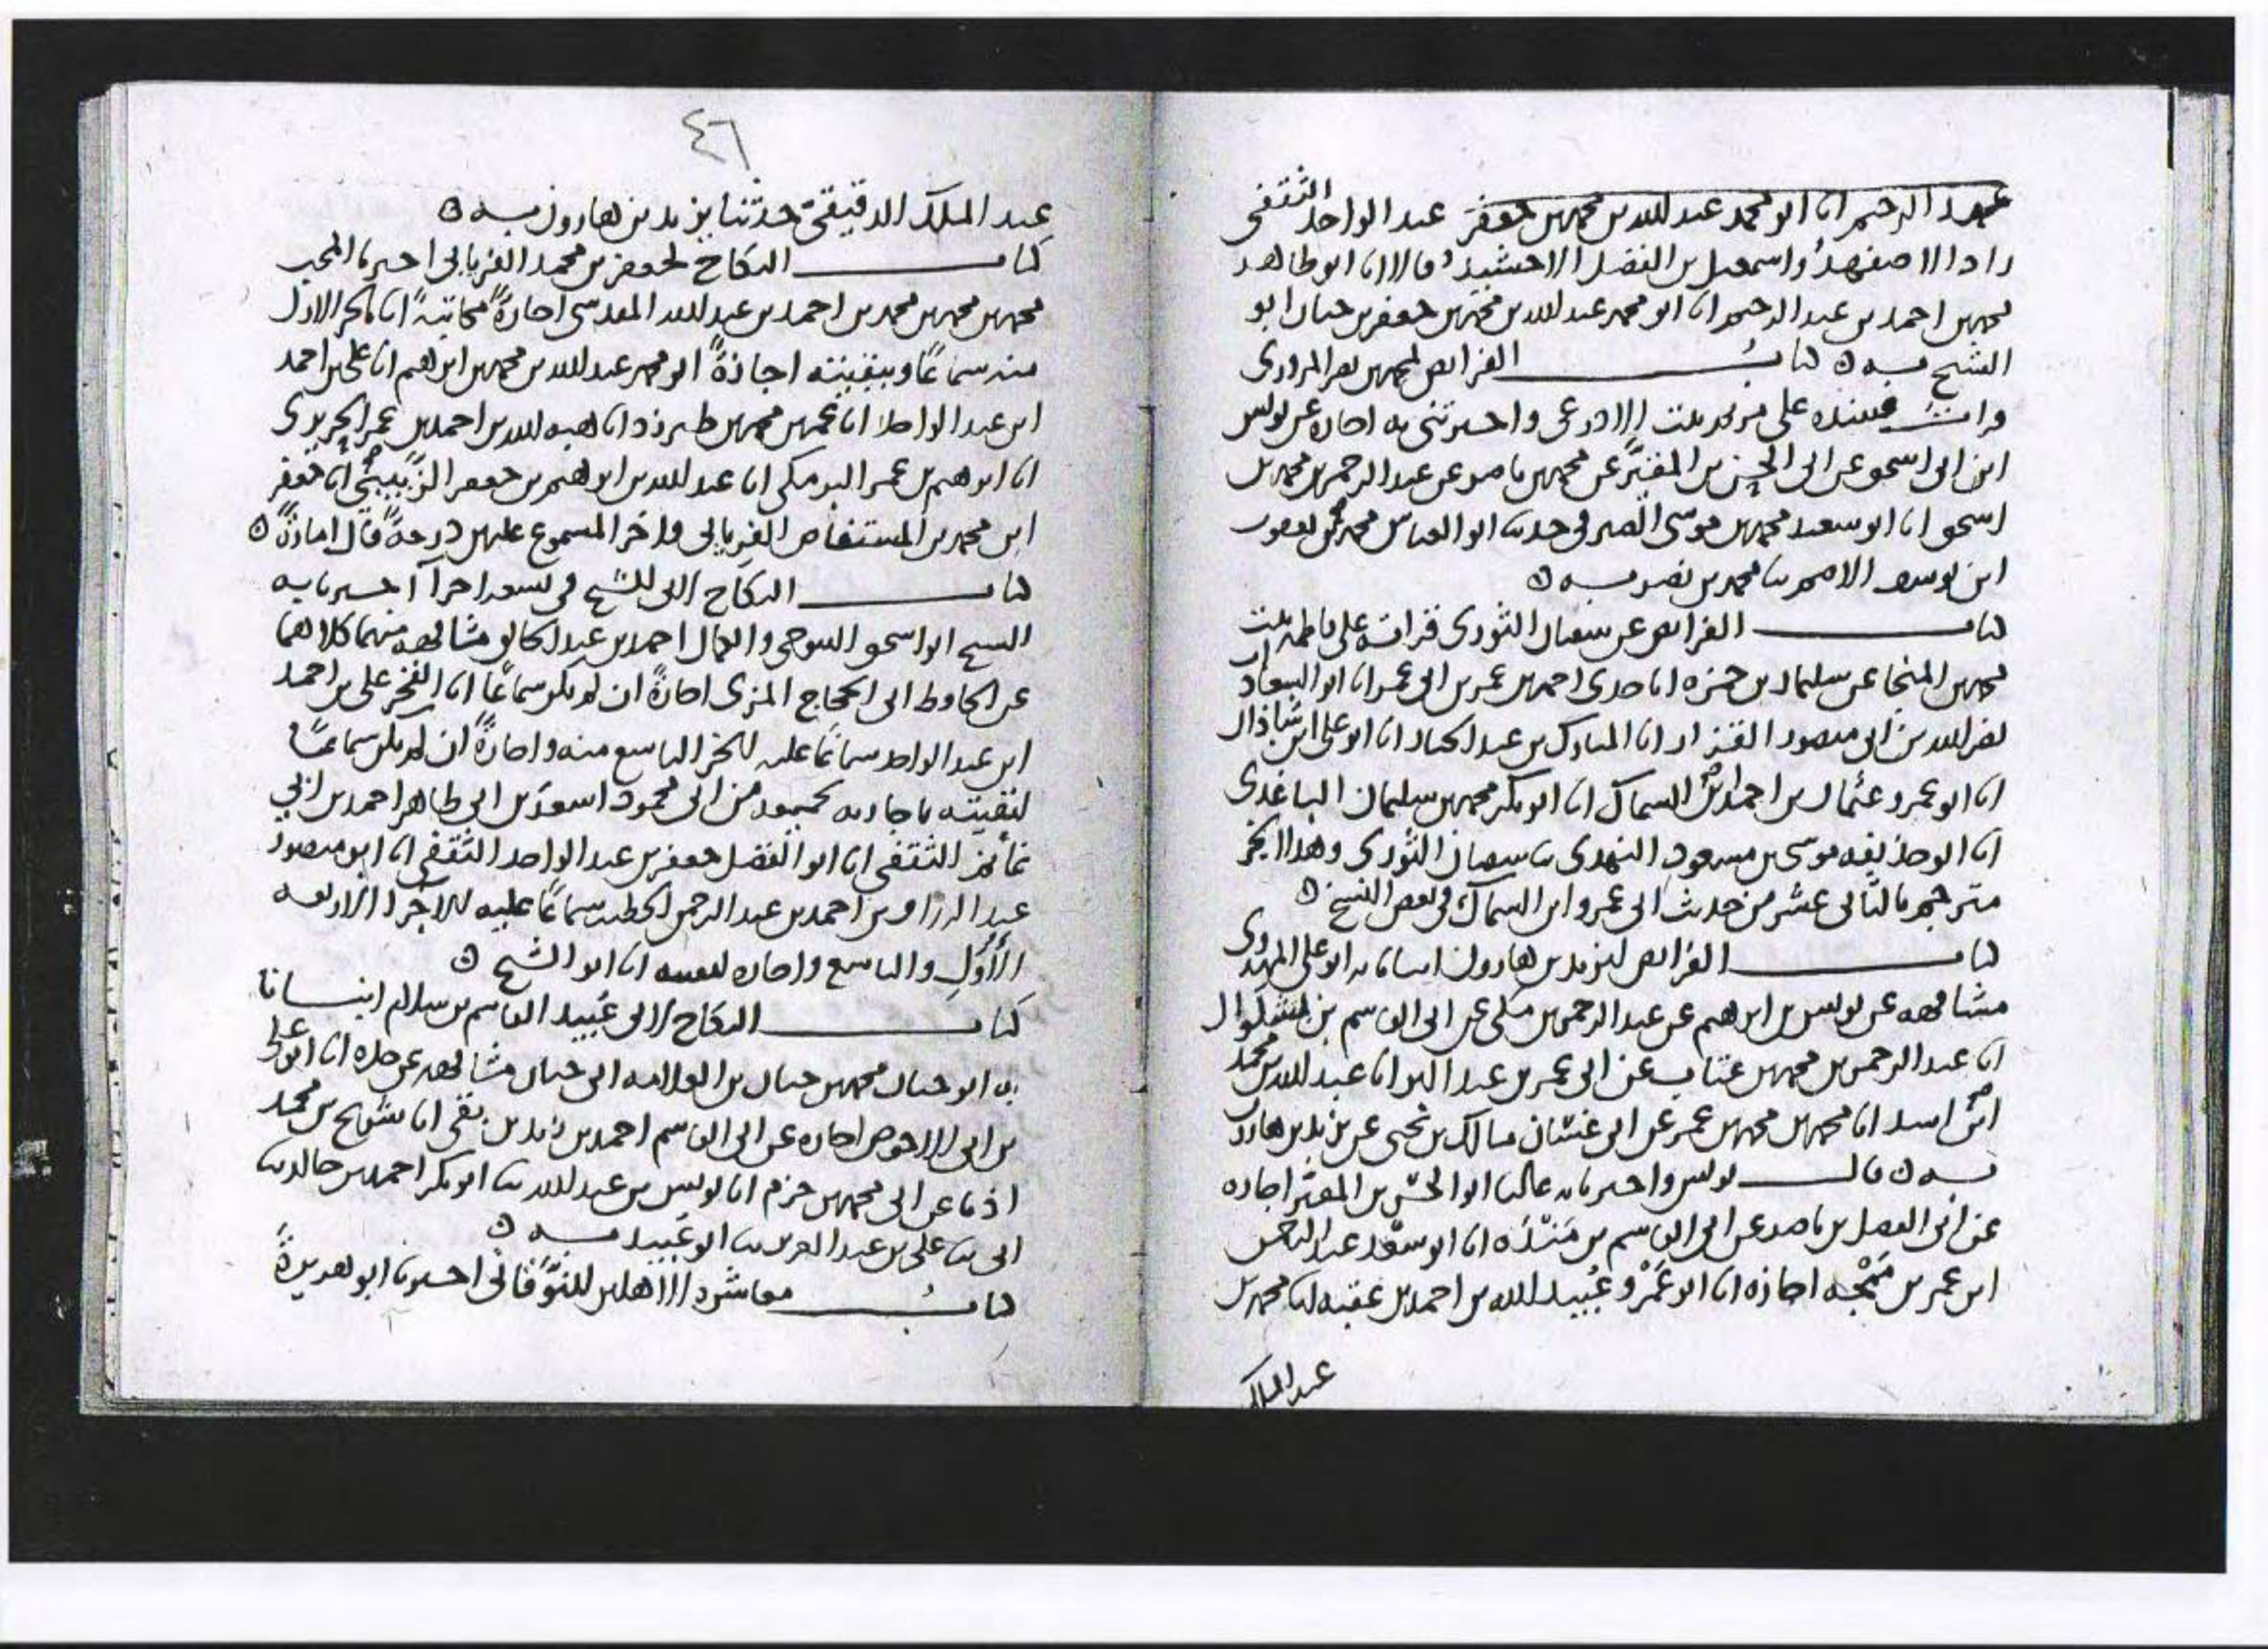 عبد الرحيم انا ابو محمد عبد الله بن محمد بن جعفر عبد الواحد الثقفي
زاد الاصفهبد واسمعيل بن الفضل الاخشيد قالا انا ابو طاهر
محمد بن احمد بن عبد الرحيم انا ابو محمد عبد الله بن محمد بن جعفر بن حيان ابو
الشيخ به ه كتاب الفرائض لمحمد بن نصر المروزي
قرات على مريم بنت الاذرعي واخبرتني به اجازة عن يونس
ابن ابي اسحق عن ابي الحسن بن المقير عن محمد بن ناصر عن عبد الرحمن بن محمد بن
اسحق انا ابو سعيد محمد بن موسى الصيرفي حدثنا ابو العباس محمد بن يعقوب
ابن يوسف الاصم ثنا محمد بن نصر به ه
كتاب الفرائض عن سفيان الثوري قراته على فاطمة بنت
محمد بن المنجا عن سليمان بن حمزة انا جدي احمد بن عمر بن ابي عمر انا ابو السعادات
نصر الله بن ابي منصور القزاز انا المبارك بن عبد الجبار انا ابو علي ابن شاذان
انا ابو عمرو عثمان بن احمد ابن السماك انا ابو بكر محمد بن سليمان الباغندي
انا ابو حذيفة موسى بن مسعود النهدي ثنا سفيان الثوري وهذا الجزء
مترجم بالثاني عشر من حديث ابي عمرو ابن السماك في بعض النسخ ه
كتاب الفرائض ليزيد بن هارون انبانا به ابو علي المهدوي
مشافهة عن يونس بن ابرهيم عن عبد الرحمن بن مكي عن ابي القاسم بن بشكوال
انا عبد الرحمن بن محمد بن عتاب عن ابي عمر بن عبد البر انا عبد الله بن محمد
ابن اسد انا محمد بن محمد بن عمر عن ابي غسان مالك بن يحيى عن يزيد بن هارون
به ه قال يونس واخبرنا به عاليا ابو الحسن بن المقير اجازة
عن ابي الفضل بن ناصر عن ابي القاسم بن مندة انا ابو سعد عبد الرحمن
ابن عمر بن ممجه اجازة انا ابو عمرو عبيد الله بن احمد بن عقبة ثنا محمد بن
عبد الملك
٤٦
عبد الملك الدقيقي حدثنا يزيد بن هارون به ه
كتاب النكاح لجعفر بن محمد الفريابي اخبرنا المحب
محمد بن محمد بن محمد بن احمد بن عبد الله المقدسي اجازة مكاتبة انا بالجزء الاول
منه سماعا وببقيته اجازة ابو محمد عبد الله بن محمد بن ابرهيم انا علي بن احمد
ابن عبد الواحد انا عمر بن محمد بن طبرزد انا هبة الله بن احمد بن عمر الحريري
انا ابرهيم بن عمر البرمكي انا عبد الله بن ابرهيم بن جعفر الزبيبي انا جعفر
ابن محمد بن المستفاض الفريابي واخر المسموع عليهن درجة قال امانة ه
كتاب النكاح لابي الشيخ في تسعة اجزآ اخبرنا به
الشيخ ابو اسحق التنوخي والكمال احمد بن عبد الخالق مشافهة منهما كلاهما
عن الحافظ ابي الحجاج المزي اجازة ان لم يكن سماعا انا الفخر علي بن احمد
ابن عبد الواحد سماعا عليه للجزء التاسع منه واجازة ان لم يكن سماعا
لبقيته باجازته من ابي محمود اسعد بن ابي طاهر احمد بن ابي
غانم الثقفي انا ابو الفضل جعفر بن عبد الواحد الثقفي انا ابو منصور
عبد الرزاق بن احمد بن عبد الرحمن الخطيب سماعا عليه للاجزا الاربعة
الأُوَل والتاسع واجازة لبقيته انا ابو الشيخ ه
كتاب النكاح لابي عبيد القاسم بن سلام انبانا
به ابو حيان محمد بن حيان بن العلامة ابي حيان مشافهة عن جده انا ابو علي
بن ابي الاحوص اجازة عن ابي القاسم احمد بن يزيد بن بقي انا شريح بن محمد
اذنا عن ابي محمد بن حزم انا يونس بن عبد الله ثنا ابو بكر احمد بن خالد ثنا
ابي ثنا علي بن عبد العزيز ثنا ابو عبيد به ه
كتاب معاشرة الاهلين للنوقاني اخبرنا ابو هريرة